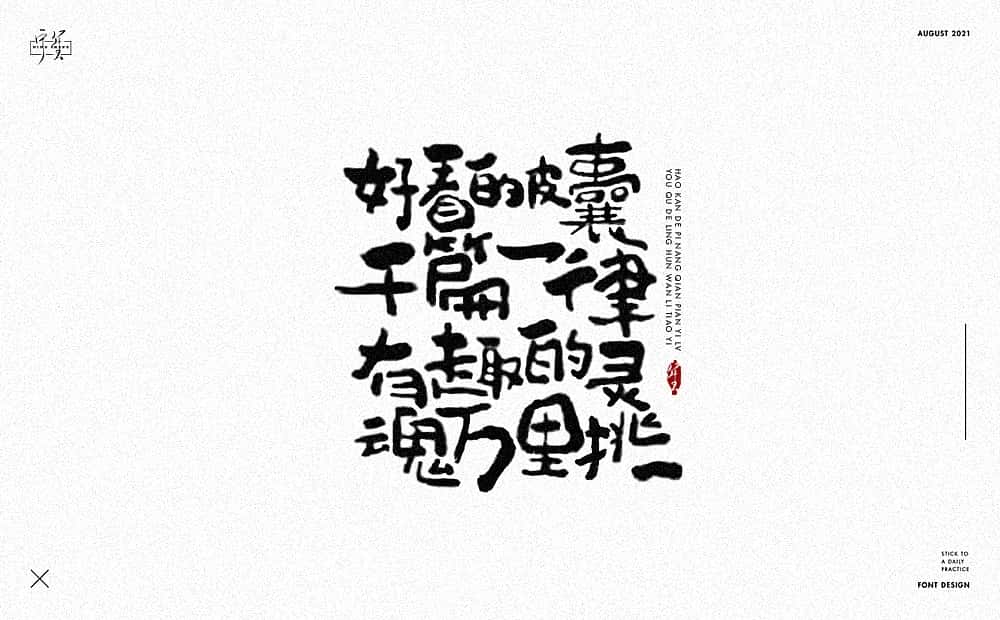 AUGUST 2021
好看的皮囊
千篇一律
有趣的灵
魂万里挑一
HAO KAN DE PI NANG QIAN PIAN YI LV
YOU QU DE LING HUN WAN LI TIAO YI
STICK TO
A DAILY
PRACTICE
FONT DESIGN